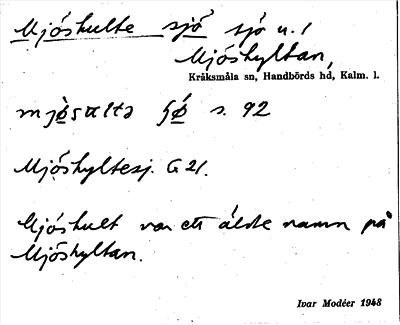 Mjöshulte sjö sjö n.!
Mjöshyltan,
Kråksmåla sn, Handbörds hd, Kalm. l.
s. 92
Mjöshyltesj. G 21.
Mjöshult var ett äldre namn på
Mjöshyltan.
Ivar Modéer 1948